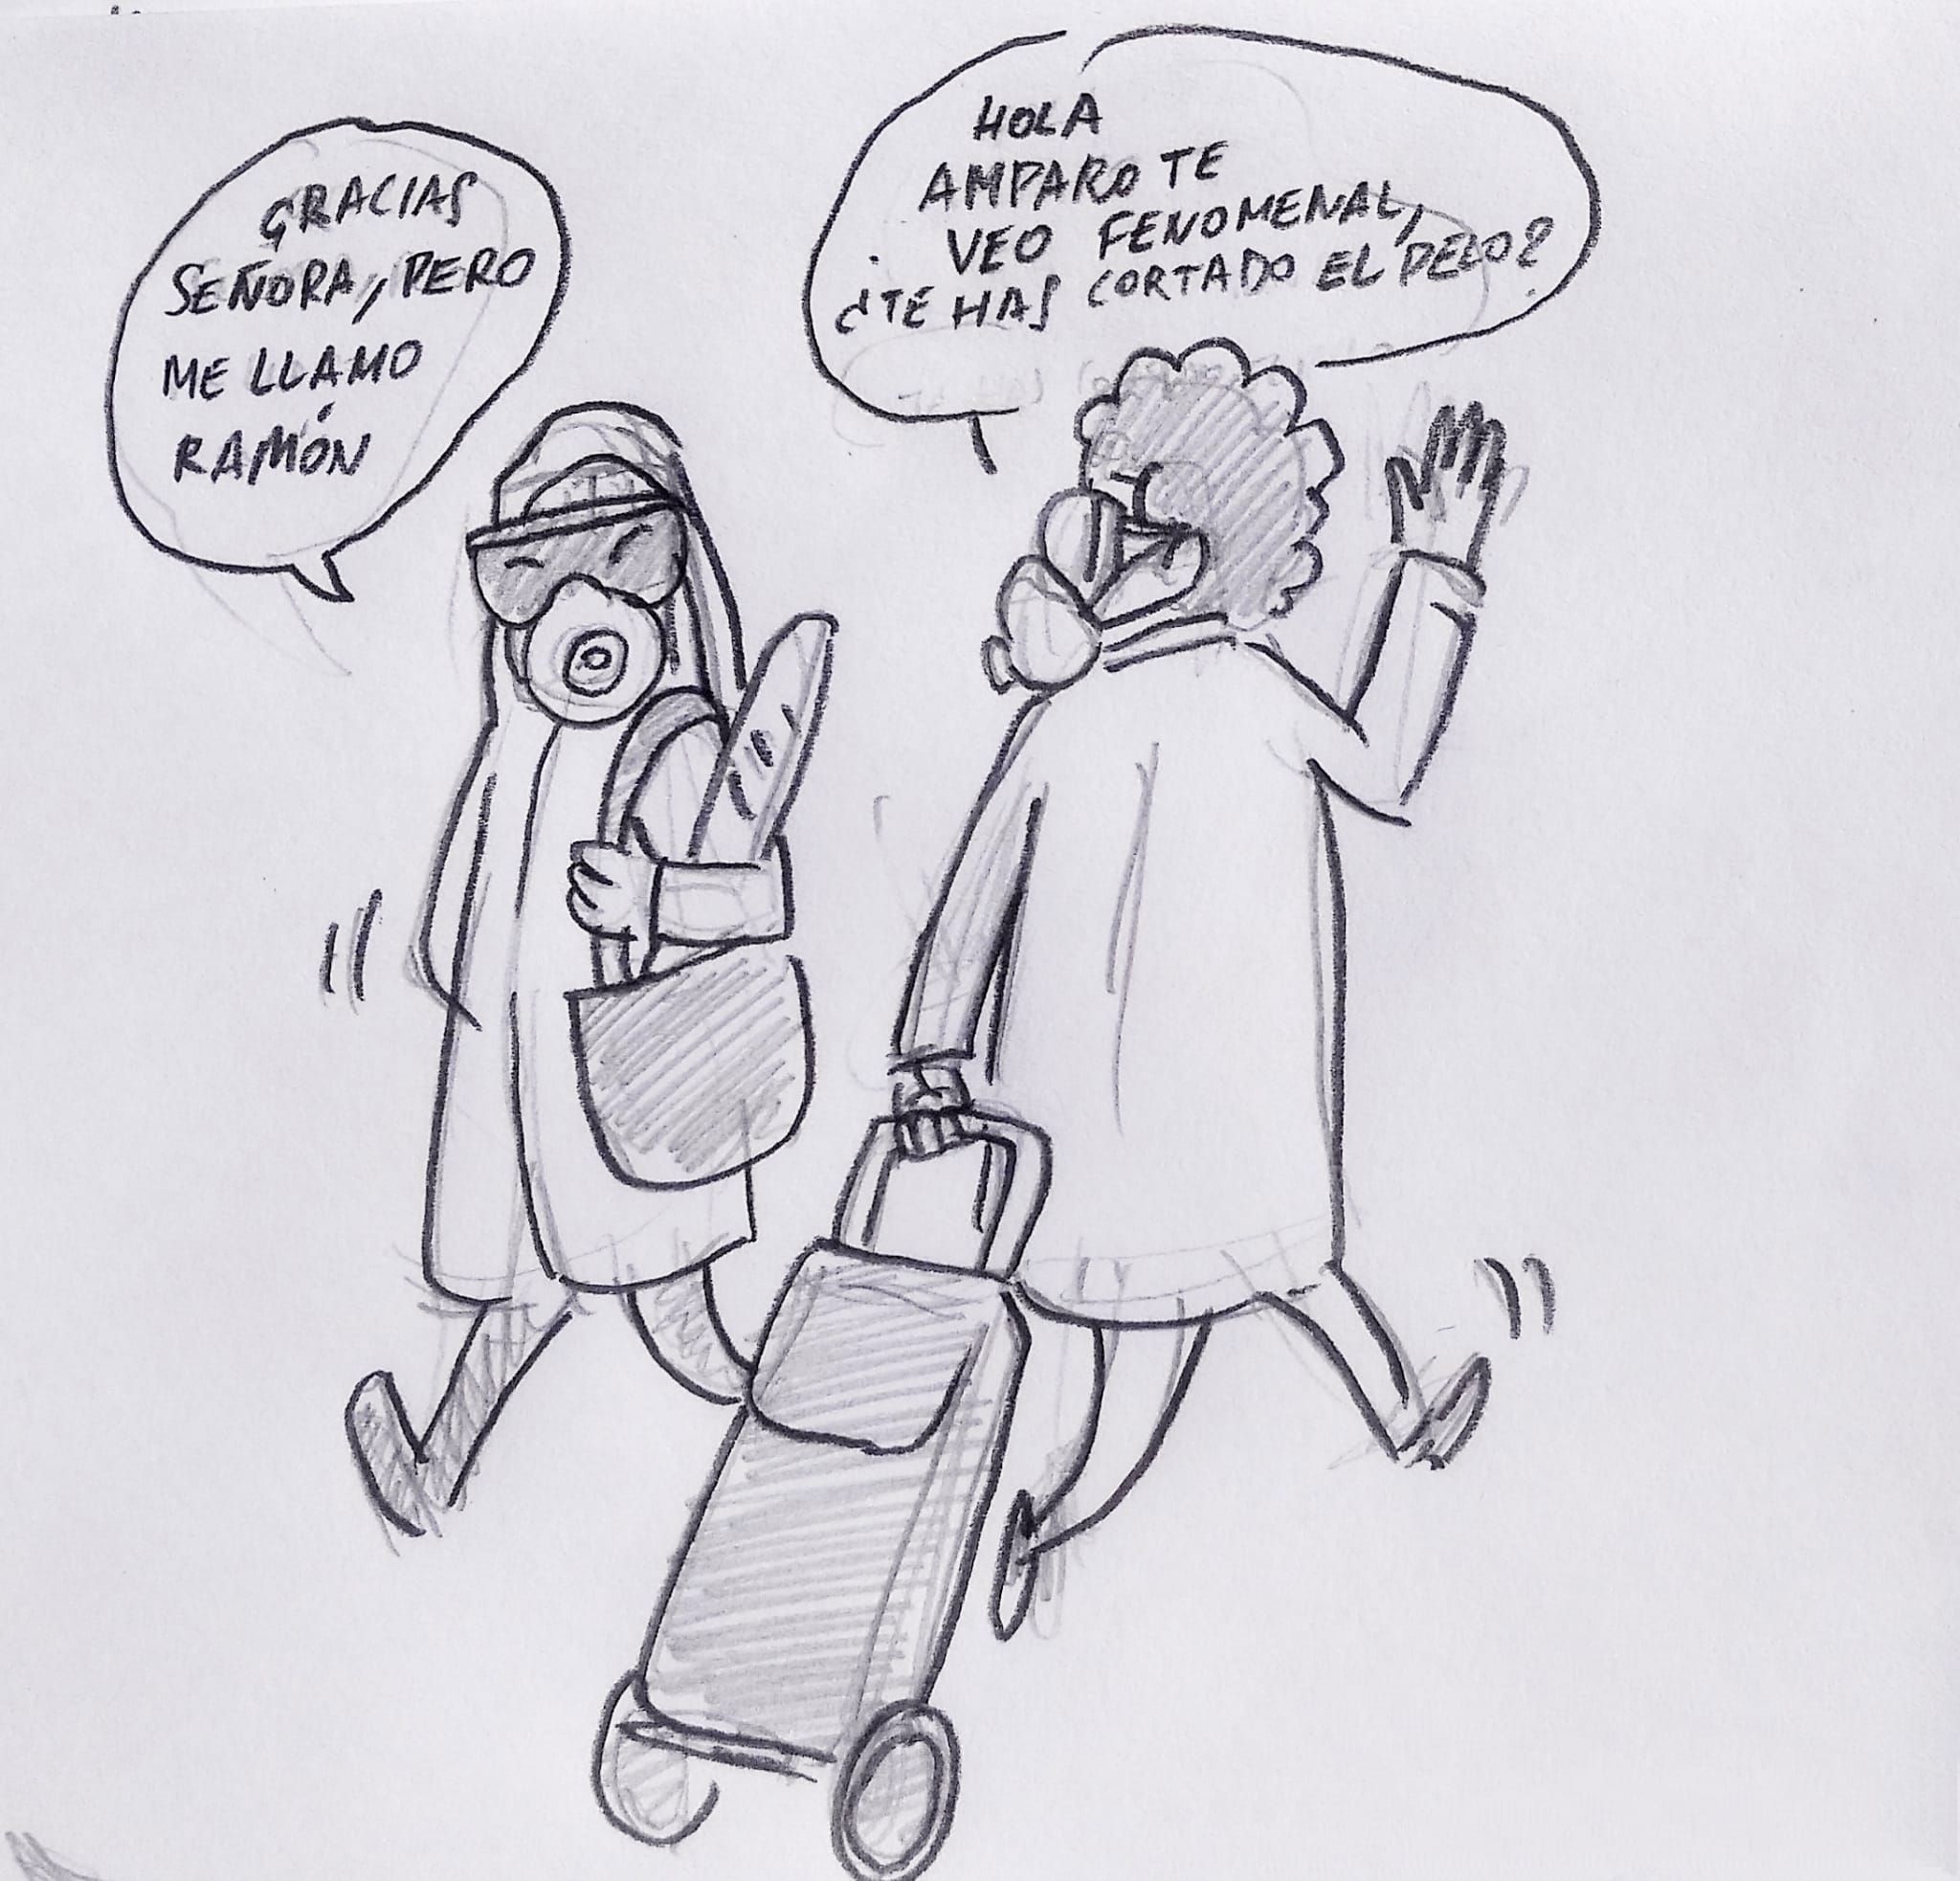 HOLA
AMPARO TE
VEO FENOMENAL,
¿TE HAS CORTADO EL PELO?
GRACIAS
SEÑORA, PERO
ME LLAMO
RAMÓN